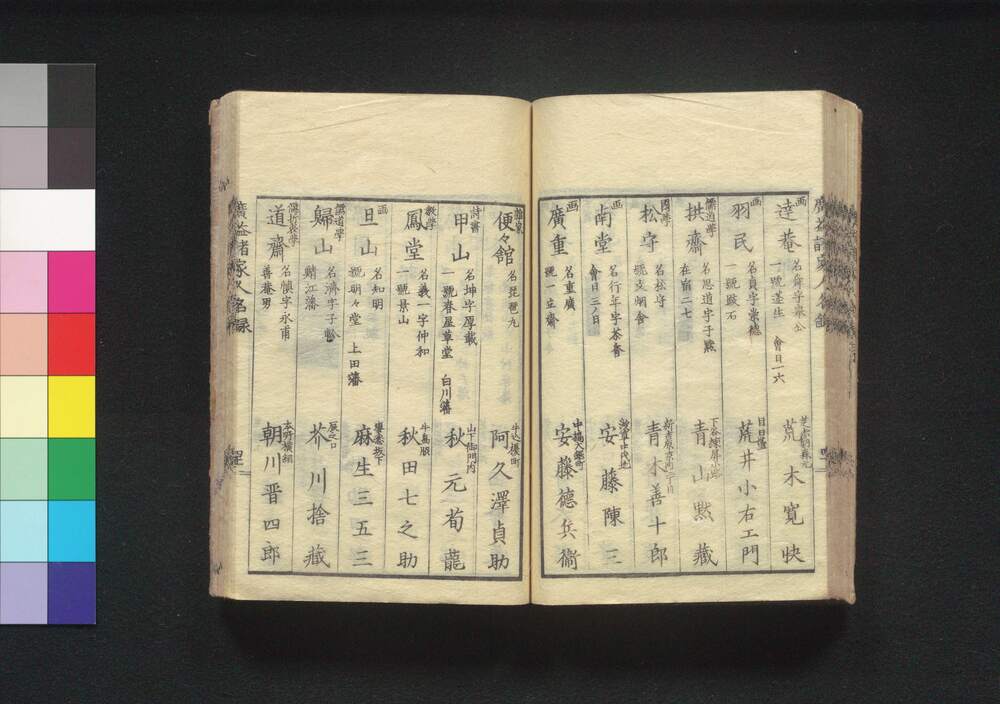 画
達菴
名舜字泰公
一號蓬生
會日一六
荒木寛快
画
羽民
名貞字崇徳
一號跛石
荒井小右エ門
儒道學
拱齋
名思道字于黙
在宿二七
下谷練屏小路
青山黙藏
國學
松守
名松守
號文明舎
青木善十郎
画
南堂
名行年字茶香
會日三ノ日
安藤陳三
画
廣重
名重廣
號一立齋
中橋大鋸町
安藤徳兵衛
便々館
名琵琶九
牛込榎町
阿久澤貞助
詩書
甲山
名坤字厚載
一號春星草堂
白川藩
山下御門内
秋元荀龍
數學
鳳堂
名義一字仲和
一號景山
牛島
秋田七之助
画
旦山
名知明
號朝々堂
上田藩
麻生三五三
儒道學
歸山
名濟字子
鯖江藩
辰之口
芥川捨藏
道齋
名慎字永甫
善菴男
本所横綱
朝川晋四郎
廣益諸家人名録